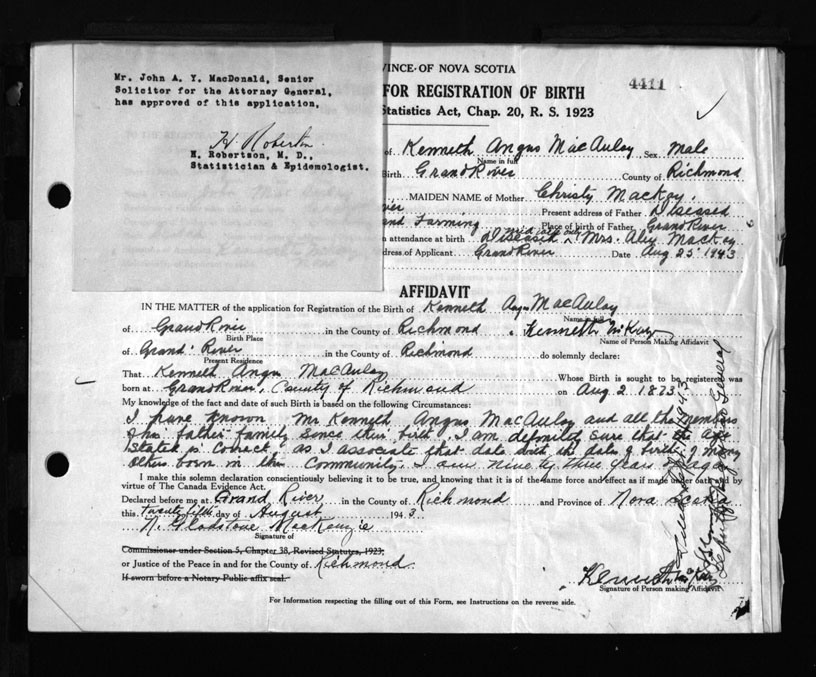 Mr. John A. Y. MacDonald, Senior
Solicitor for the Attorney General,
has approved of this application,
H Robertson
H. Robertson, M. D.,
Statistician & Epidemologist.
VINCE OF NOVA SCOTIA
4411
FOR REGISTRATION OF BIRTH
Statistics Act, Chap. 20, R. S. 1923
of Kenneth Angus MacAulay Sex Male
Name in full
Birth Grand River County of Richmond
MAIDEN NAME of Mother Christy MacKay.
Present address of Father Diseased
and Farming Place of birth of Father Grand River
n attendance at birth Diseased Mrs. MacKay
dress of Applicant Grand River Date Aug 25 1943
AFFIDAVIT
IN THE MATTER of the application for Registration of the Birth of Kenneth Angus MacAulay
Name in full
of Grand River in the County of Richmond Kenneth McKay
Birth Place Name of Person Making Affidavit
of Grand River in the County of Richmond do solemnly declare:
Present Residence
That Kenneth Angus MacAulay Whose Birth is sought to be registered was
born at Grand River, County of Richmond on Aug 2 1873
My knowledge of the fact and date of such Birth is based on the following Circumstances:
I have known Mr Kenneth Angus MacAulay and all the members
of his father family since their birth, I am definitely sure that the age
stated is correct, as I associate that date with the date of birth of many
others born in this Community. I am ninety three years of age.
I make this solemn declaration conscientiously believing it to be true, and knowing that it is of the same force and effect as if made under oath and by
virtue of The Canada Evidence Act.
Declared before me at Grand River in the County of Richmond and Province of Nova Scotia
this Twenty fifth day of August 1943
N. Gladstone MacKenzie
Signature of
Commissioner under Section 5, Chapter 38, Revised Statutes, 1923,
or Justice of the Peace in and for the County of Richmond.
If sworn before a Notary Public affix seal.
Kenneth McKay
Signature of Person making Affidavit
For Information respecting the filling out of this Form, see Instructions on the reverse side.
1943
Deputy Registrar General